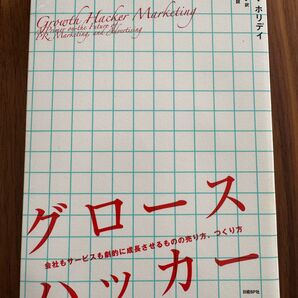 Growth Hacker Marketing
A Primer on the Future of
PR, Marketing, and Advertising
ホリデイ
グロース
会社もサービスも劇的に成長させるものの売り方、つくり方
ハッカー
日経BP社